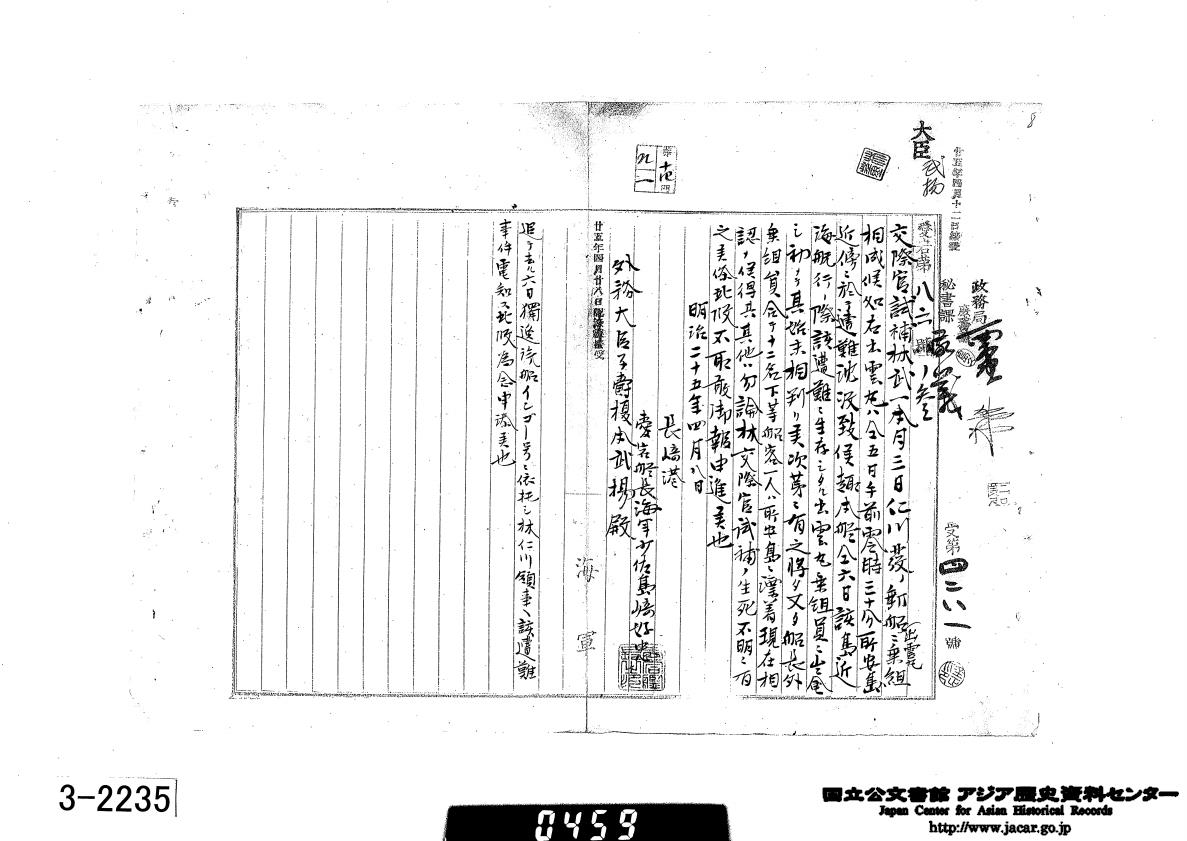 8
廿五年四月十二日接受
大臣
武揚
政務局
秘書課
受第四二八一號
愛宕第八六號ノ参
交際官試補林武一本月三日仁川發ノ郵船出雲丸ニ乗組
相成候処右出雲丸ハ仝五日午前零時三十分所安島
近傍ニ於テ遭難沈没致候趣本艦仝六日該島近
海航行ノ際該遭難ニ生存シタル出雲丸乗組員ニ出会
シ初メテ其始末相判リ候次第ニ有之将タ又タ船長外
乗組員合テ十二名下等船客一人ハ所安島ニ漂着現在相
認メ候得共其他ハ勿論林交際官試補ノ生死不明ニ有
之候条此段不取敢御報申進候也
明治二十五年四月八日
長崎港
愛宕艦長海軍少佐島崎好忠
外務大臣子爵榎本武揚殿
廿五年四月廿八日
海軍
追テ去ル六日獨逸汽船インゴー号ニ依托シ林仁川領事ヘ該遭難
事件電知ス此段為念申添候也
第十四
九
一
3-2235
0459
国立公文書館 アジア歴史資料センター
Japan Center for Asian Historical Records
http://www.jacar.go.jp